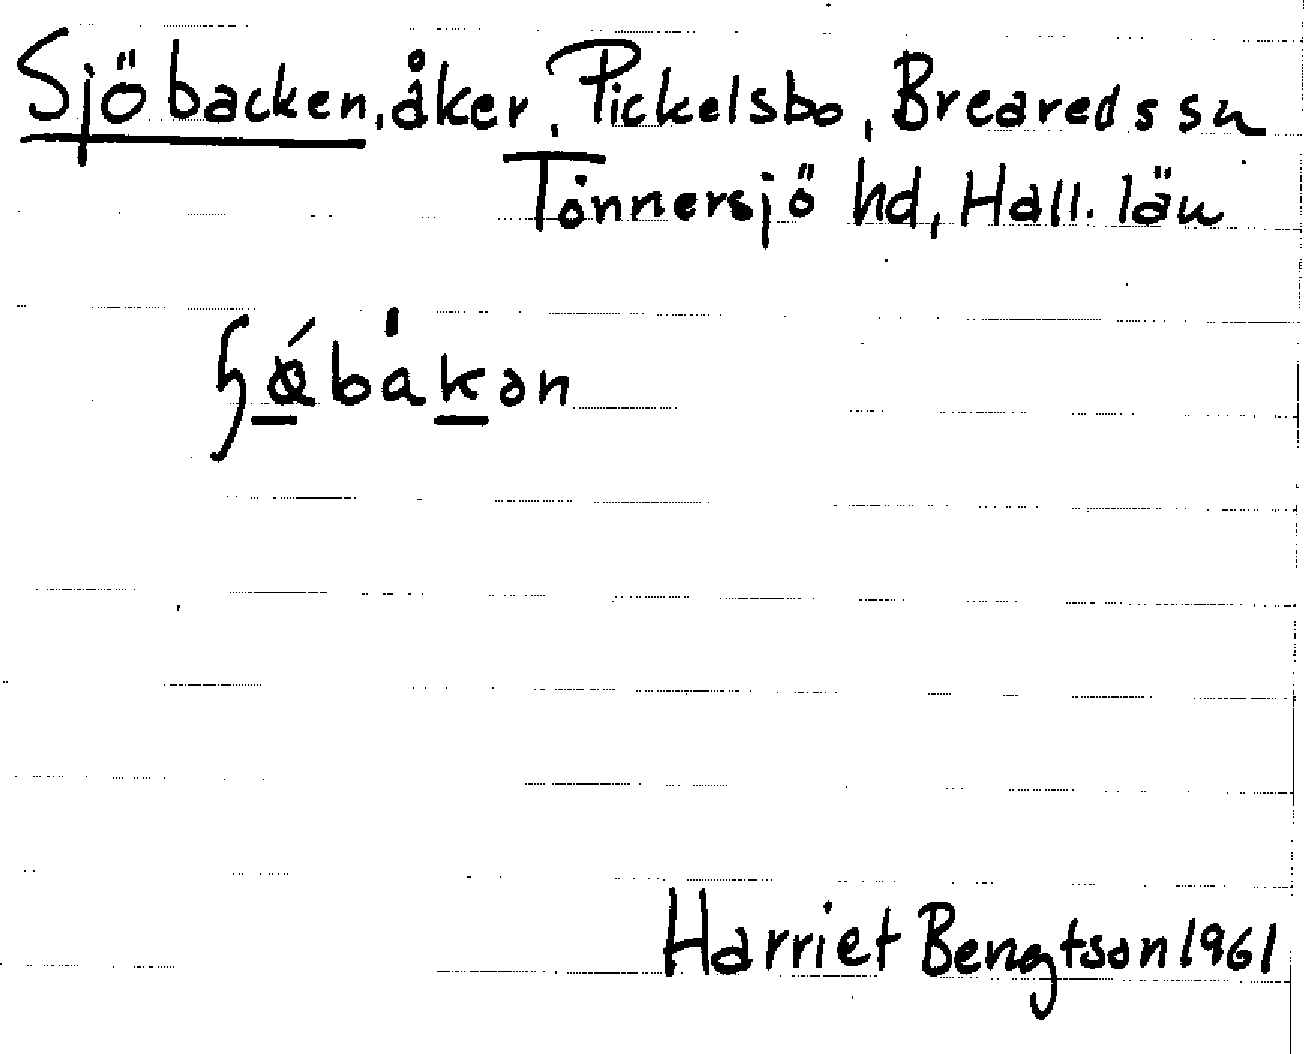 Sjöbacken, åker, Pickelsbo, Breareds sn
Tönnersjö hd, Hall. län
Harriet Bengtson 1961